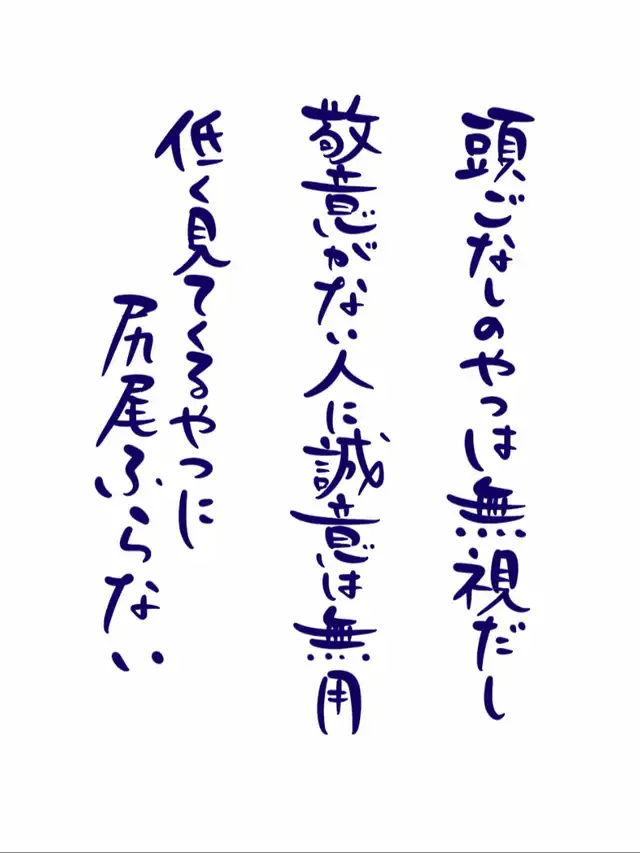 頭ごなしのやつは無視だし
敬意がない人に誠意は無用
低く見てくるやつに
尻尾ふらない